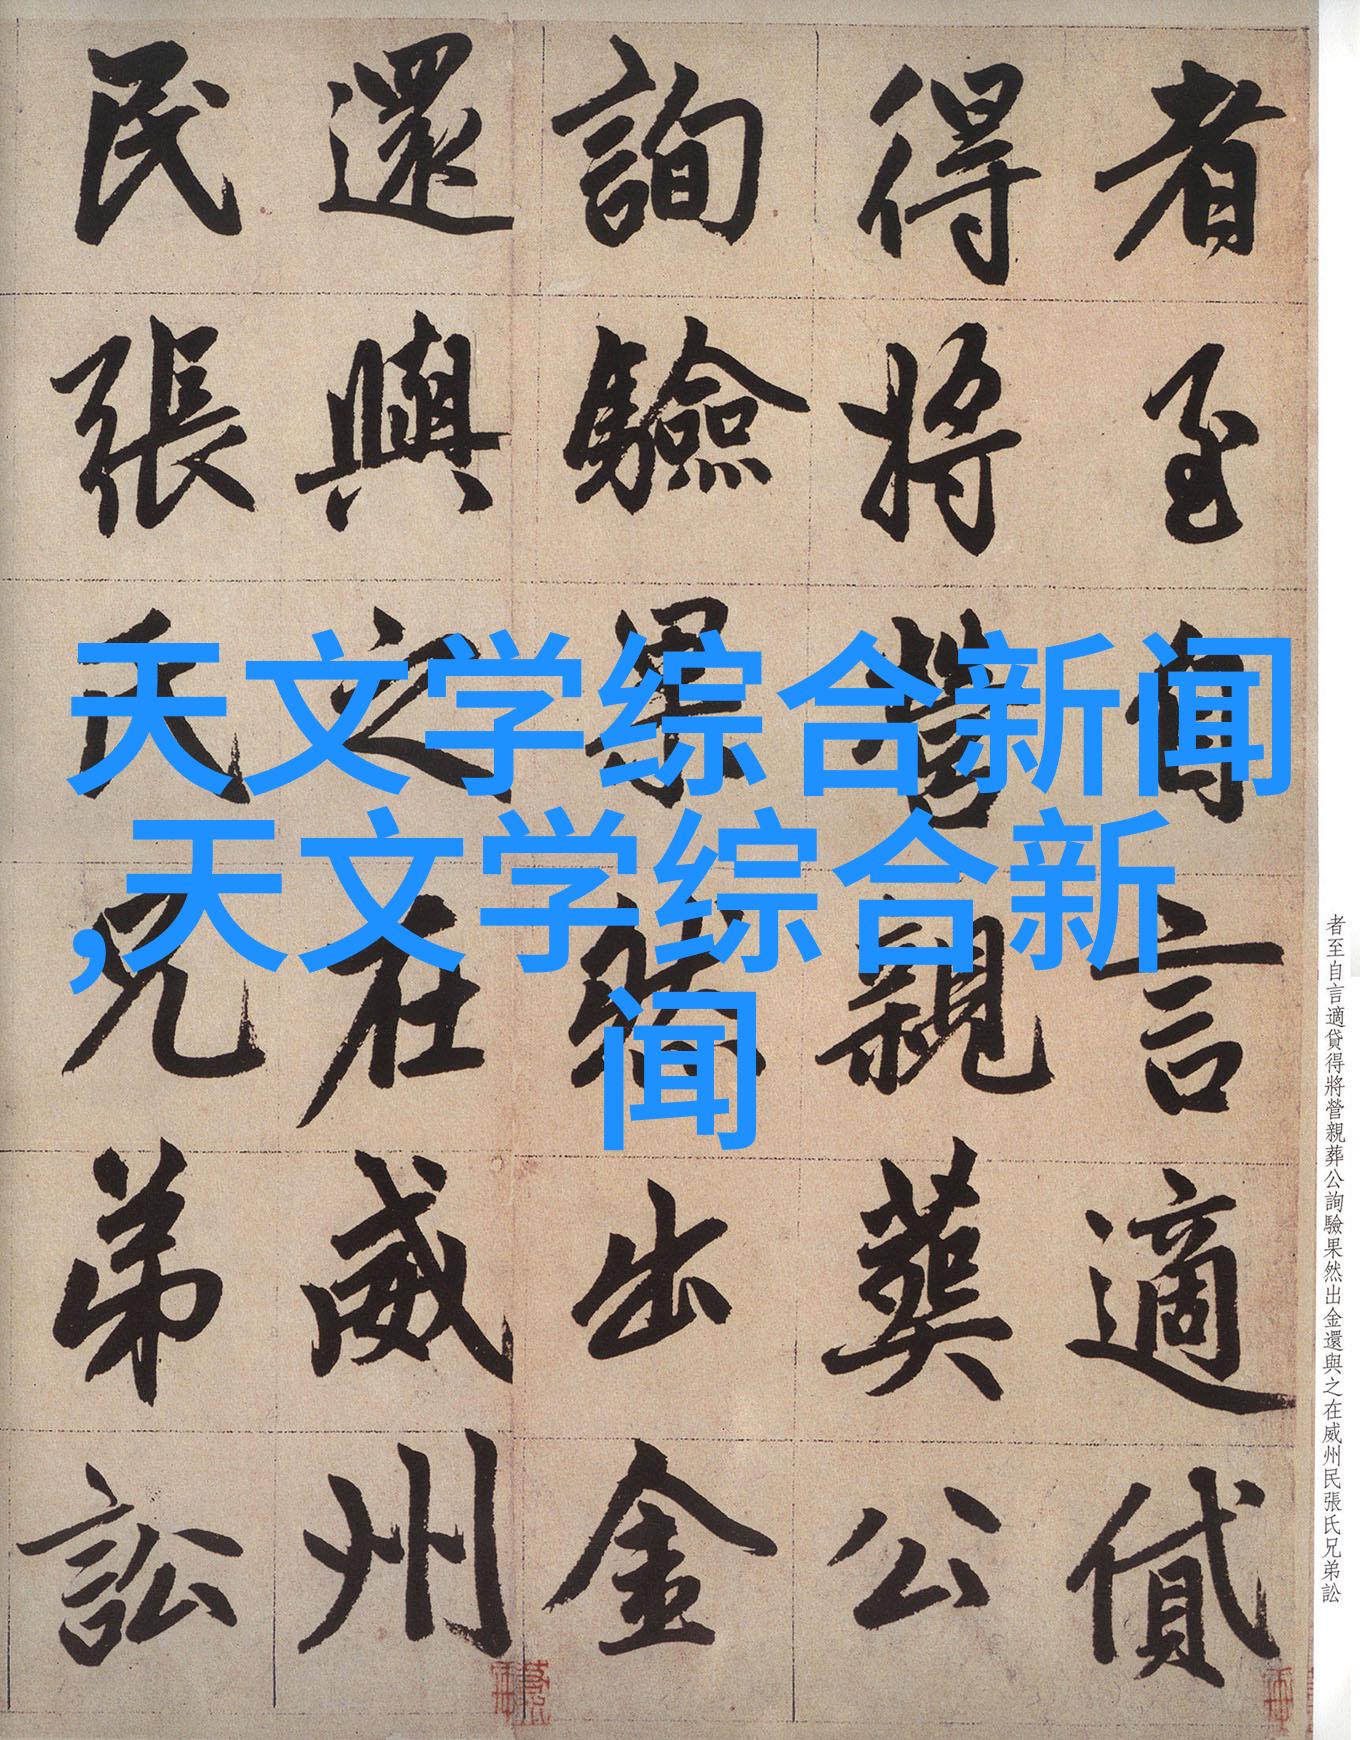 者至自言適貸
得將營親葬公
詢驗果然出金
還與之在威州
民張氏兄弟訟
天文学综合新闻
,天文学综合新
闻
者至自言適貸得將營親葬公詢驗果然出金還與之在威州民張氏兄弟訟